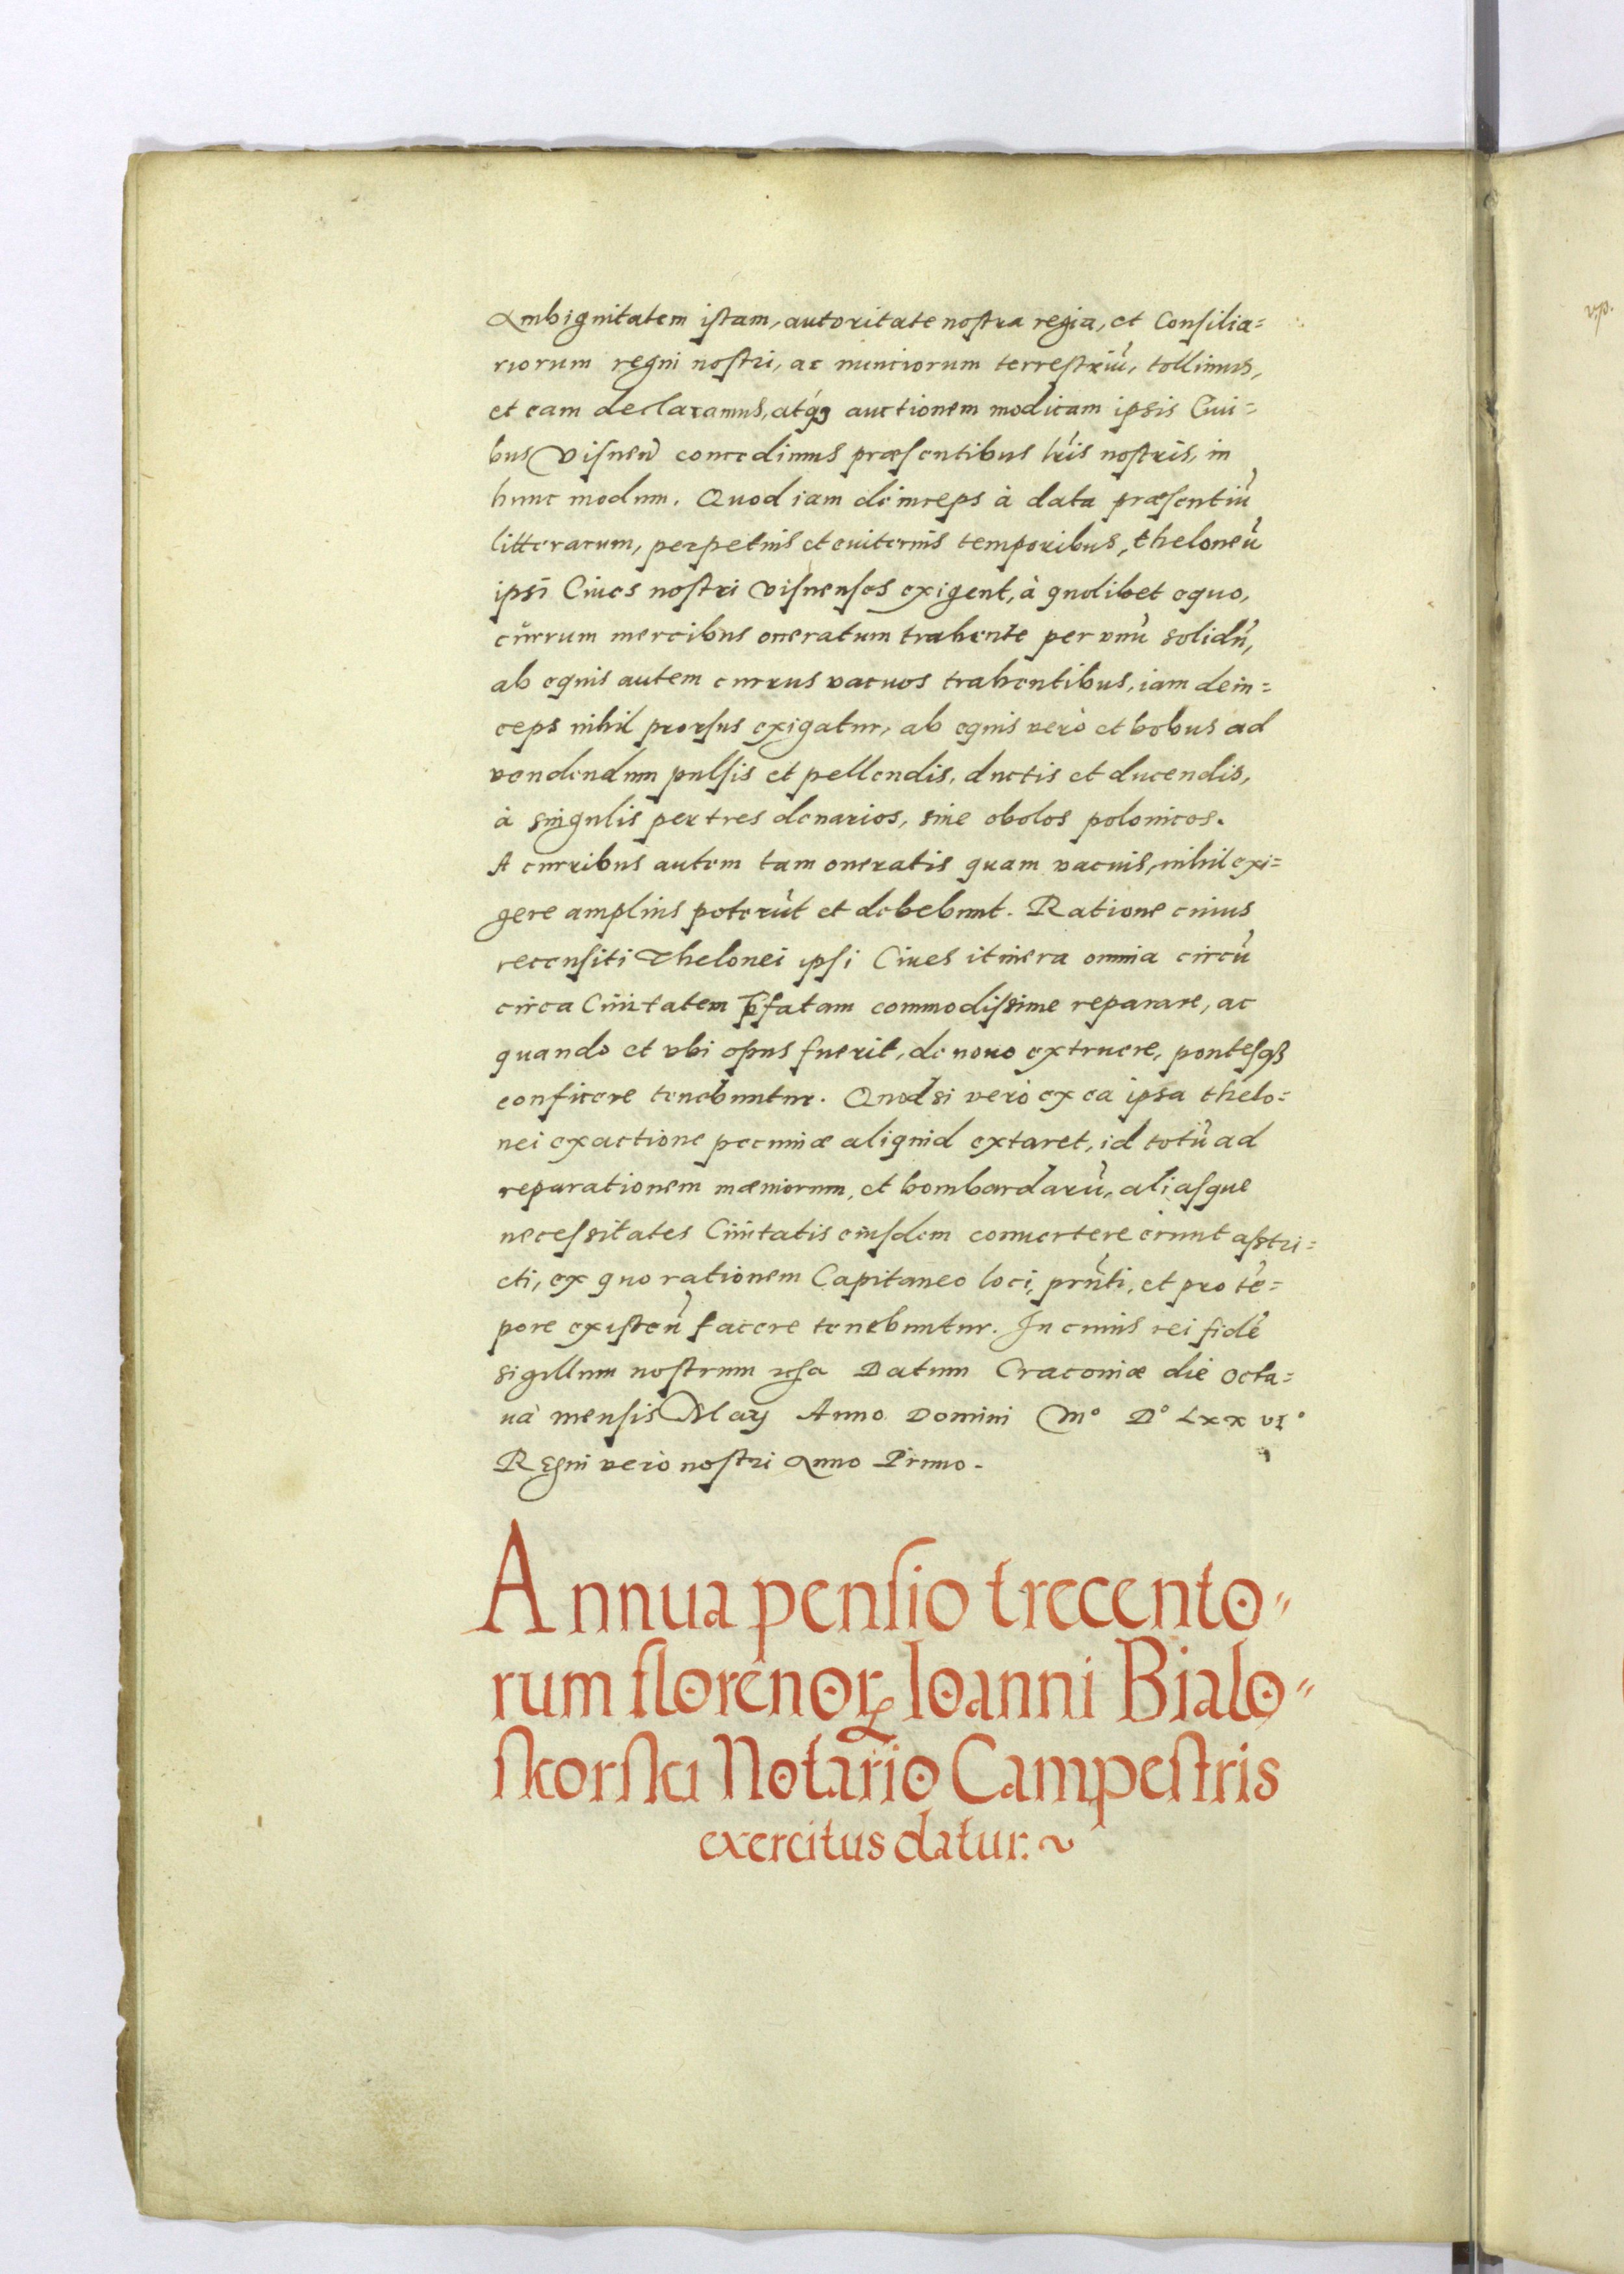 Ambiguitatem istam, autoritate nostra regia, et Consilia=
riorum regni nostri, ac nunciorum terrestriũ, tollimus,
et eam declaramus, atq́ȝ auctionem modicam ipsis Ciui=
bus Visneñ concedimus præsentibus lr̃is nostris, in
hunc modum. Quod iam deinceps à data præsentiũ
litterarum, perpetuis et euiternis temporibus, theloneũ
ipsi Ciues nostri visnenses exigent, à quolibet equo,
currum mercibus oneratum trahente per vnũ solidũ,
ab equis autem currus vacuos trahentibus, iam dein=
ceps nihil prorsus exigatur, ab equis verò et bobus ad
vendendum pulsis et pellendis, ductis et ducendis,
à singulis per tres denarios, siue obolos polonicos.
A curribus autem tam oneratis quam vacuis, nihil exi=
gere amplius poterũt et debebunt. Ratione cuius
recensiti Thelonei ipsi Ciues itinera omnia circũ
circa Ciuitatem p̃fatam commodissime reparare, ac
quando et vbi opus fuerit, de nouo extruere, pontesqȝ
conficere tenebuntur. Quod si verò ex ea ipsa thelo=
nei exactione pecuniæ aliquid extaret, id totũ ad
reparationem mæniorum, et bombardarũ, aliasque
necessitates Ciuitatis eiusdem conuertere erunt astri=
cti, ex quo rationem Capitaneo loci, prñti, et pro tẽ=
pore existeñ facere tenebuntur. In cuius rei fidẽ
sigillum nostrum Datum Cracouiæ die octa=
uà mensis Maij Anno Domini M° D° Lxx vi°
Regni verò nostri Anno Primo.
Annua pensio trecento=
rum florenoꝝ Ioanni Bialo=
skorski Notario Campestris
exercitus datur:~
vp.